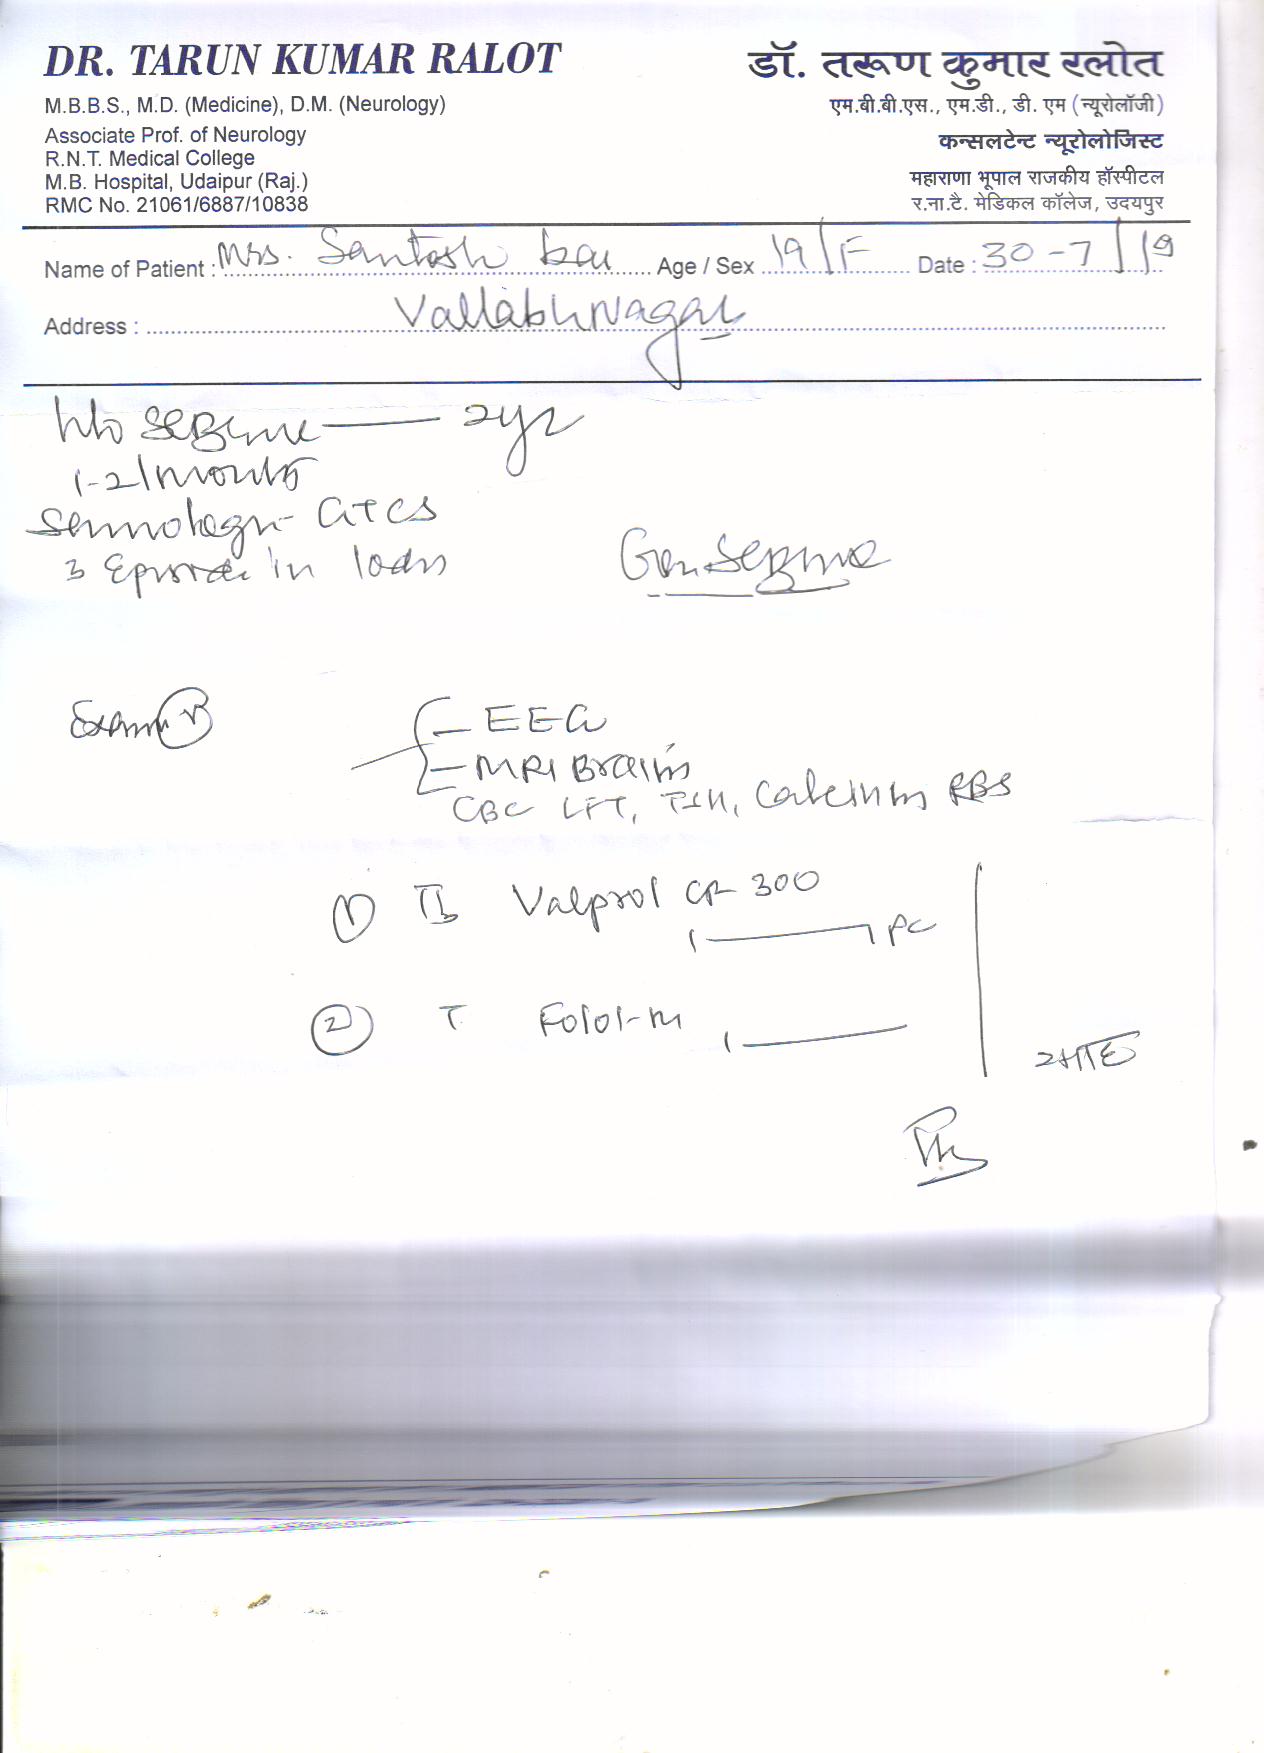 DR. TARUN KUMAR RALOT
M.B.B.S., M.D. (Medicine), D.M. (Neurology)
Associate Prof. of Neurology
R.N.T. Medical College
M.B. Hospital, Udaipur (Raj.)
RMC No. 21061/6887/10838
डॉ. तरूण कुमार रलोत
एम.बी.बी.एस., एम.डी., डी. एम (न्यूरोलॉजी)
कन्सलटेन्ट न्यूरोलोजिस्ट
महाराणा भूपाल राजकीय हॉस्पीटल
र.ना.टै. मेडिकल कॉलेज, उदयपुर
Name of Patient : Mrs. Santosh bai Age / Sex 19/F Date : 30-7/19
Address : Vallabhnagar
h/o Seizure — 2yr
1-2/month
Semiology - GTCS
3 Episode in 10dn
Gen. Seizure
Exam N
- EEG
- MRI Brain
CBC LFT, TSH, Calcium RBS
1 Tb Valprol CR 300
1 — 1 PC
2 T. Folol-M 1 —